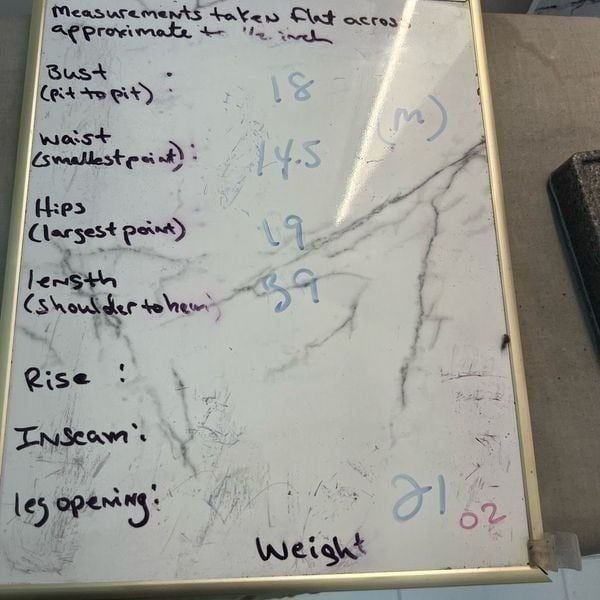 Measurements taken flat across
approximate to 1/2 inch
Bust :
(pit to pit) : 18
(M)
waist
(smallest point) : 14.5
Hips
(largest point) 19
length
(shoulder to hem) 59
Rise :
Inseam :
leg opening :
21 oz
Weight